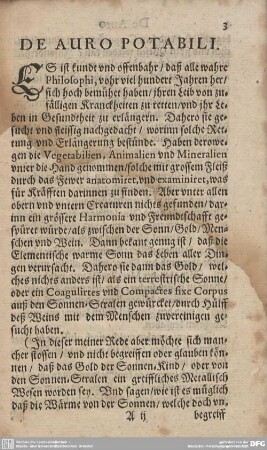 3
DE AURO POTABILI.
ES ist kundt vnd offenbahr / daß alle wahre
Philosophi, vohr viel hundert Jahren her/
sich hoch bemühet haben / jhren Leib von zu-
fälligen Kranckheiten zu retten/vnd jhr Le-
ben in Gesundtheit zu erlängern. Dahero sie ge-
sucht vnd fleissig nachgedacht / worinn solche Ret-
tung vnd Erlängerung bestünde. Haben derowe-
gen die Vegetabilien, Animalien vnd Mineralien
vnter die Hand genommen/solche mit grossem Fleiß
durch das Fewer anatomiret, vnd examiniret, was
für Kräfften darinnen zu finden. Aber vnter allen
obern vnd vntern Creaturen nichts gefunden/ dar-
inn ein grössere Harmonia vnd Freundtschafft ge-
spüret würde/ als zwischen der Sonn/Gold/ Men-
schen vnd Wein. Dann bekant genug ist / daß die
Elementische warme Sonn das Leben aller Din-
gen verursacht. Dahero sie dann das Gold / wel-
ches nichts anders ist/ als ein terrestrische Sonne/
oder ein Coagulirtes vnd Compactes fixe Corpus
auß den Sonnen-Stralen gewürcket/ durch Hülff
deß Weins mit dem Menschen zuvereinigen ge-
sucht haben.
(In dieser meiner Rede aber möchte sich man-
cher stossen / vnd nicht begreiffen oder glauben kön-
nen / daß das Gold der Sonnen-Kind / oder von
den Sonnen-Stralen ein greiffliches Metallisch
Wesen worden sey. Vnd sagen/wie ist es müglich
daß die Wärme von der Sonnen/ welche doch vn-
A ij
begreiff